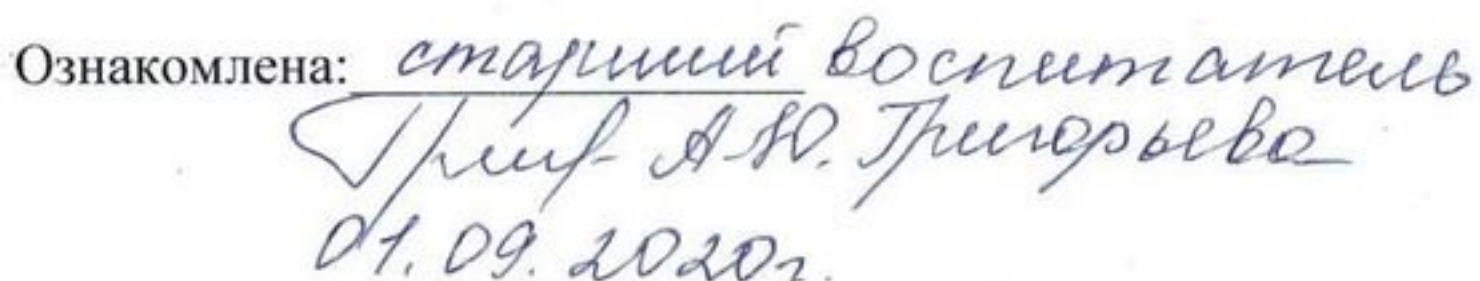 Ознакомлена: старший воспитатель
А.Ю. Григорьева
01.09.2020г.